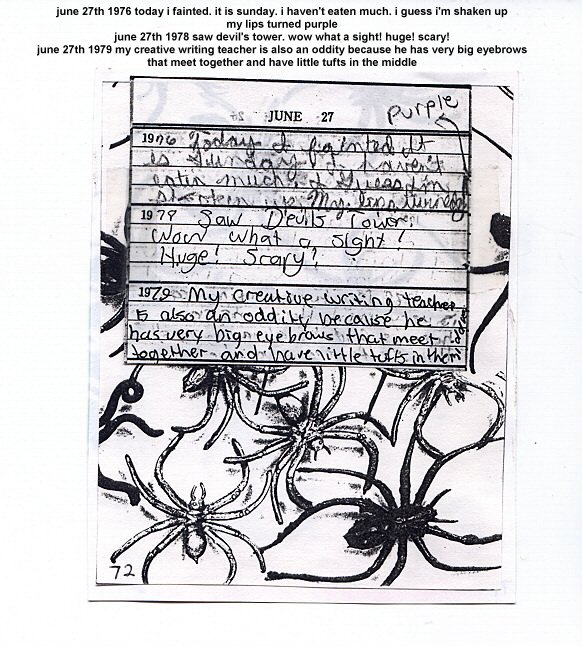 june 27th 1976 today i fainted. it is sunday. i haven't eaten much. i guess i'm shaken up
my lips turned purple
june 27th 1978 saw devil's tower. wow what a sight! huge! scary!
june 27th 1979 my creative writing teacher is also an oddity because he has very big eyebrows
that meet together and have little tufts in the middle
JUNE 27
purple
1976 Today I fainted. It
is Sunday I haven't
eatin much. I Guess I'm
up. My lips turned
1978 Saw Devils Tower.
Wow what a sight!
Huge! Scary!
1979 My creative writing teacher
is also an oddity because he
has very big eyebrows that meet
together and have little tufts in them
72